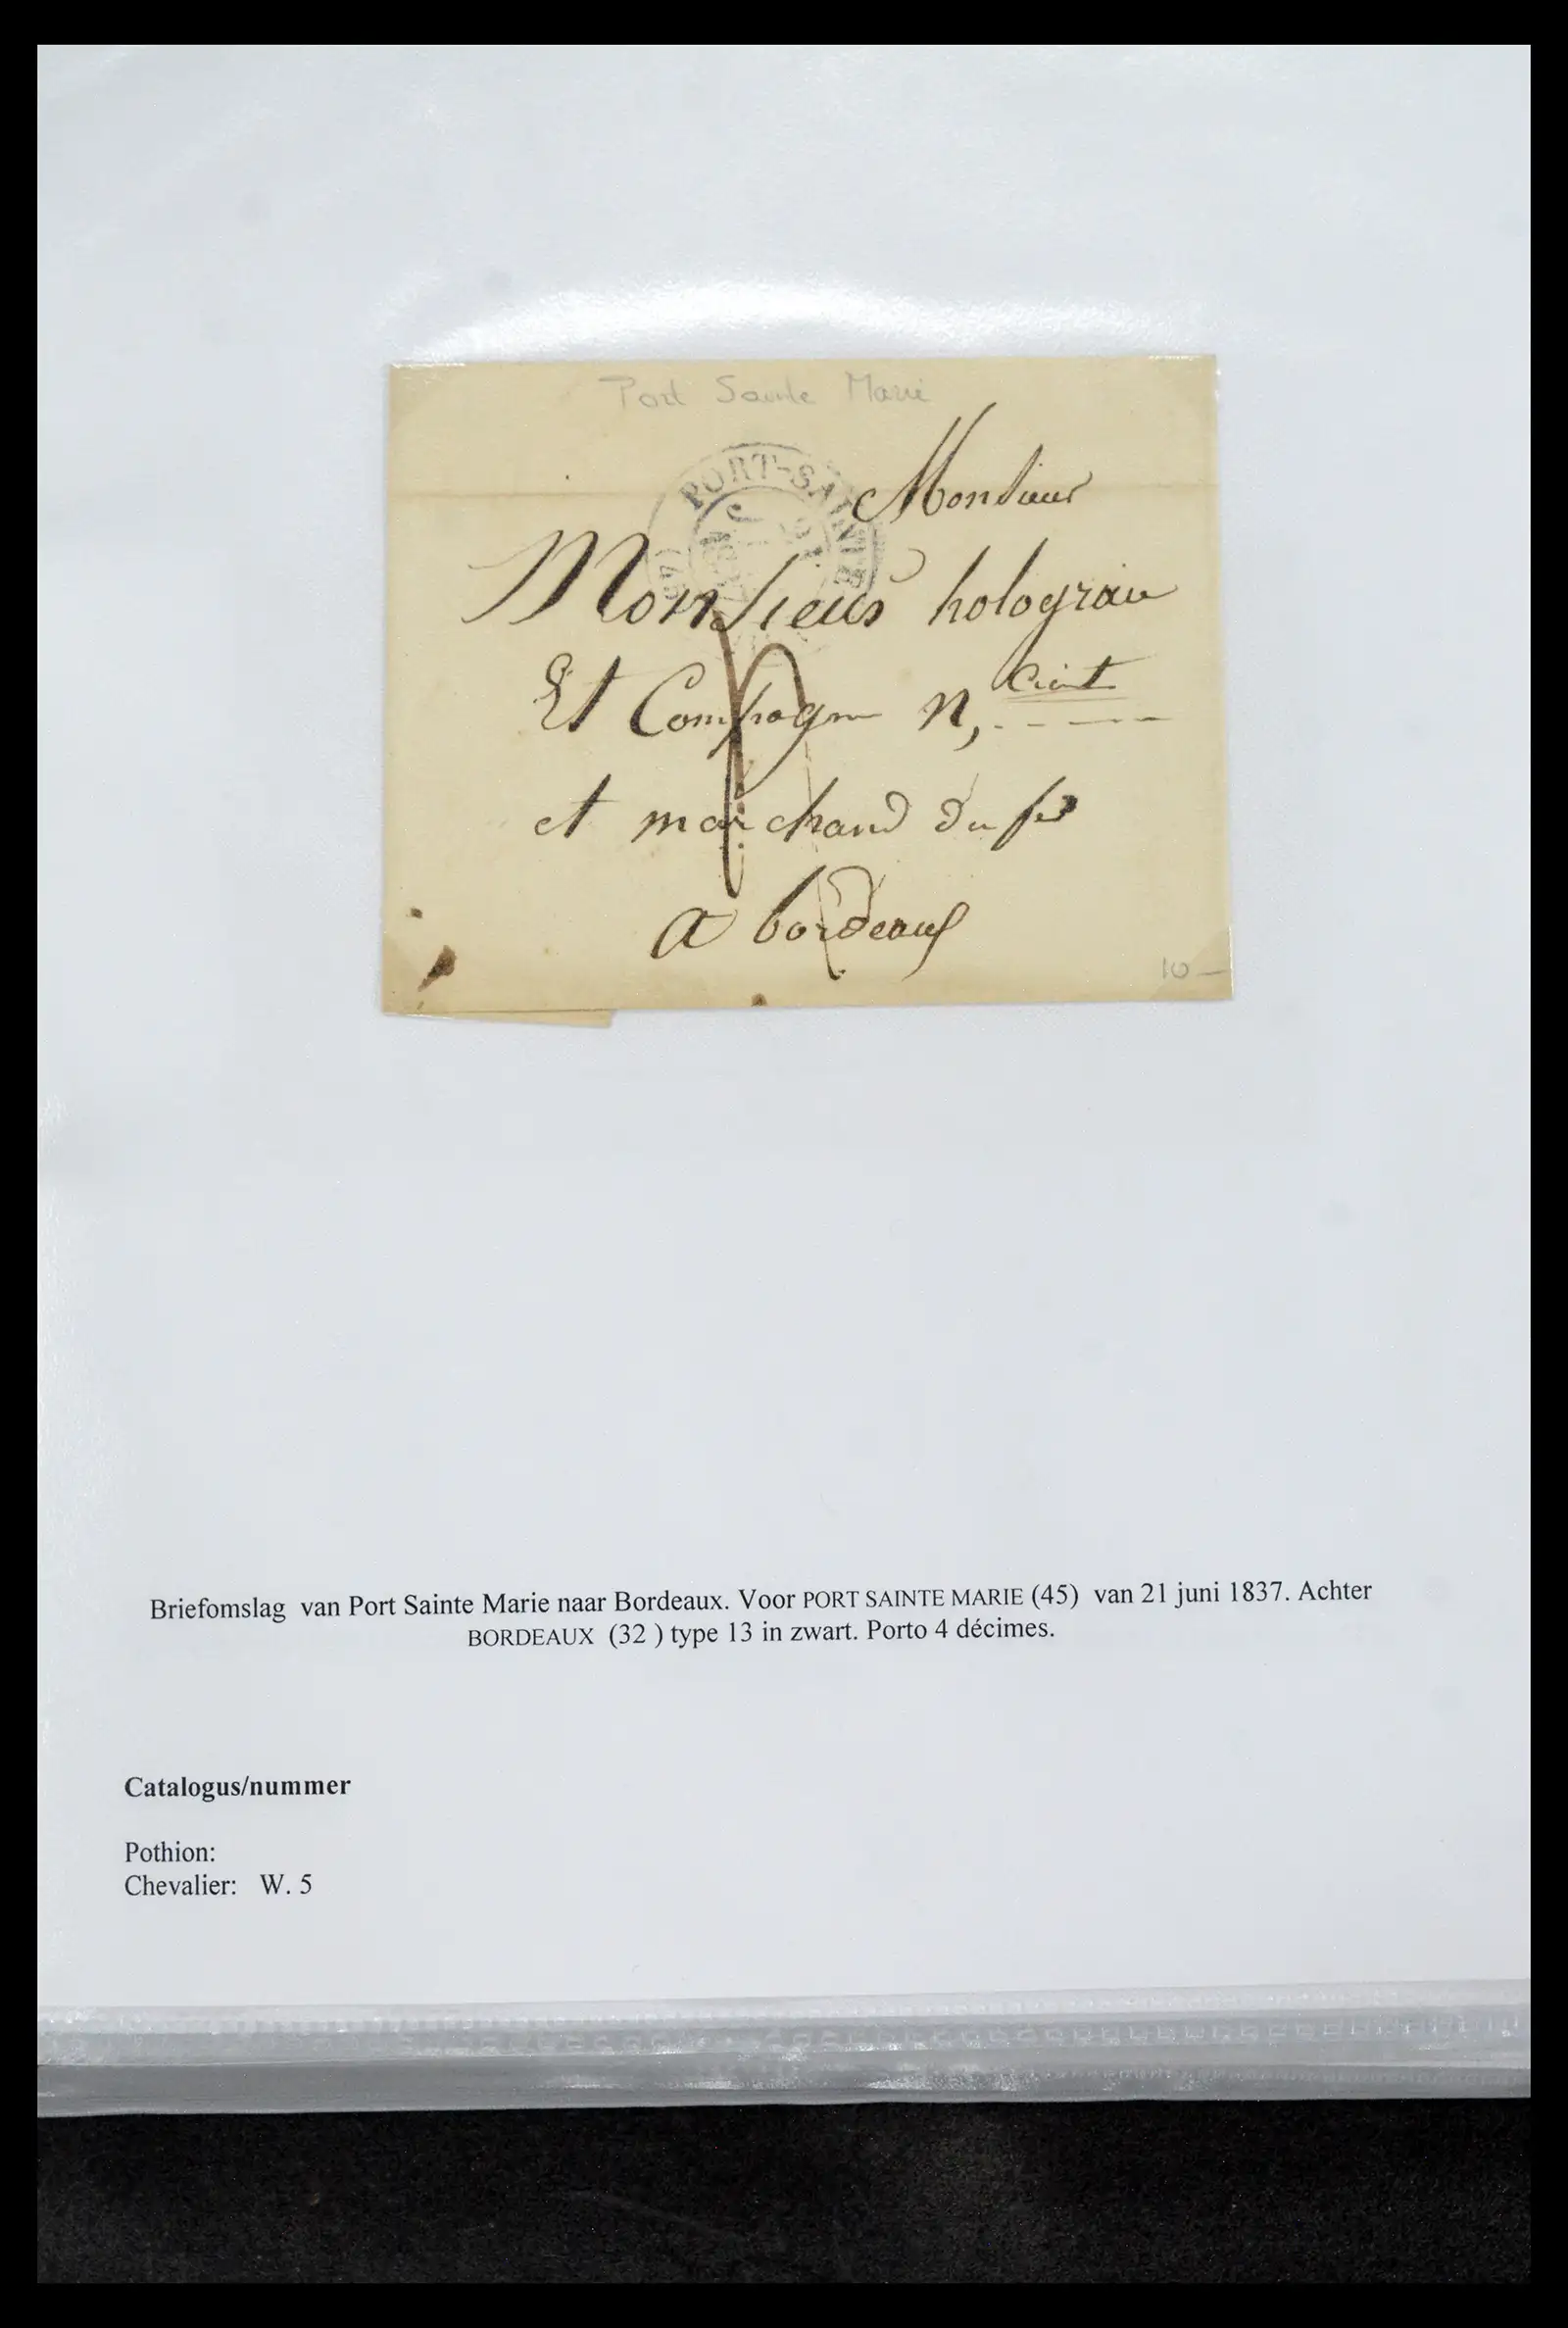 Port Sainte Marie
PORT-SAINTE
(45)
Monsieur
Monsieur
Et Compagn N,
et marchand du fer
a bordeaux
10 —
Briefomslag van Port Sainte Marie naar Bordeaux. Voor PORT SAINTE MARIE (45) van 21 juni 1837. Achter
BORDEAUX (32 ) type 13 in zwart. Porto 4 décimes.
Catalogus/nummer
Pothion:
Chevalier: W. 5